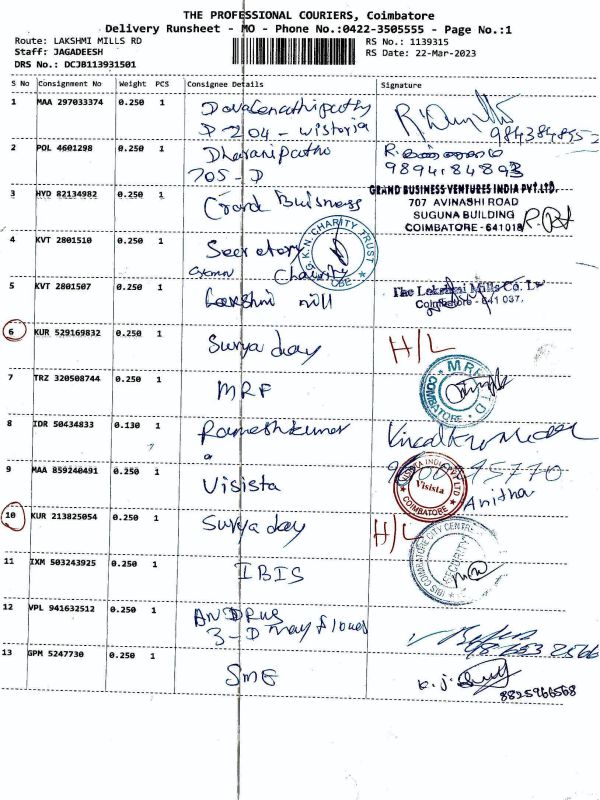 THE PROFESSIONAL COURIERS, Coimbatore
Delivery Runsheet - MO - Phone No.:0422-3505555 - Page No.:1
Route: LAKSHMI MILLS RD
RS No.: 1139315
Staff: JAGADEESH
RS Date: 22-Mar-2023
DRS No.: DCJB113931501
S No Consignment No Weight PCS Consignee Details Signature
1 MAA 297033374 0.250 1
D 204 - Wistoria
2 POL 4601298 0.250 1
705 - D 9894184893
3 HYD 82134982 0.250 1 Grand Buisness
GRAND BUSINESS VENTURES INDIA PVT.LTD.
707 AVINASHI ROAD
SUGUNA BUILDING
COIMBATORE - 641018
4 KVT 2801510 0.250 1 Secretory
G.K.N. CHARITY TRUST
CBE
Charity
5 KVT 2801507 0.250 1 Lakshmi mill
The Lakshmi Mills Co. Ltd
Coimbatore - 641 037.
6 KUR 529169832 0.250 1 Surya day H/L
7 TRZ 320508744 0.250 1 MRF
MRF LTD
COIMBATORE
8 IDR 50434833 0.130 1 Rameshkumar
9 MAA 859240491 0.250 1 Visista
VISISTA INDIA PVT LTD
Visista
COIMBATORE
Anitha
10 KUR 213825054 0.250 1 Surya day H/L
11 IXM 503243925 0.250 1 IBIS
IBIS COIMBATORE CITY CENTRE
SECURITY
12 VPL 941632512 0.250 1
3-D May flower
13 GPM 5247730 0.250 1 SME
8825966568